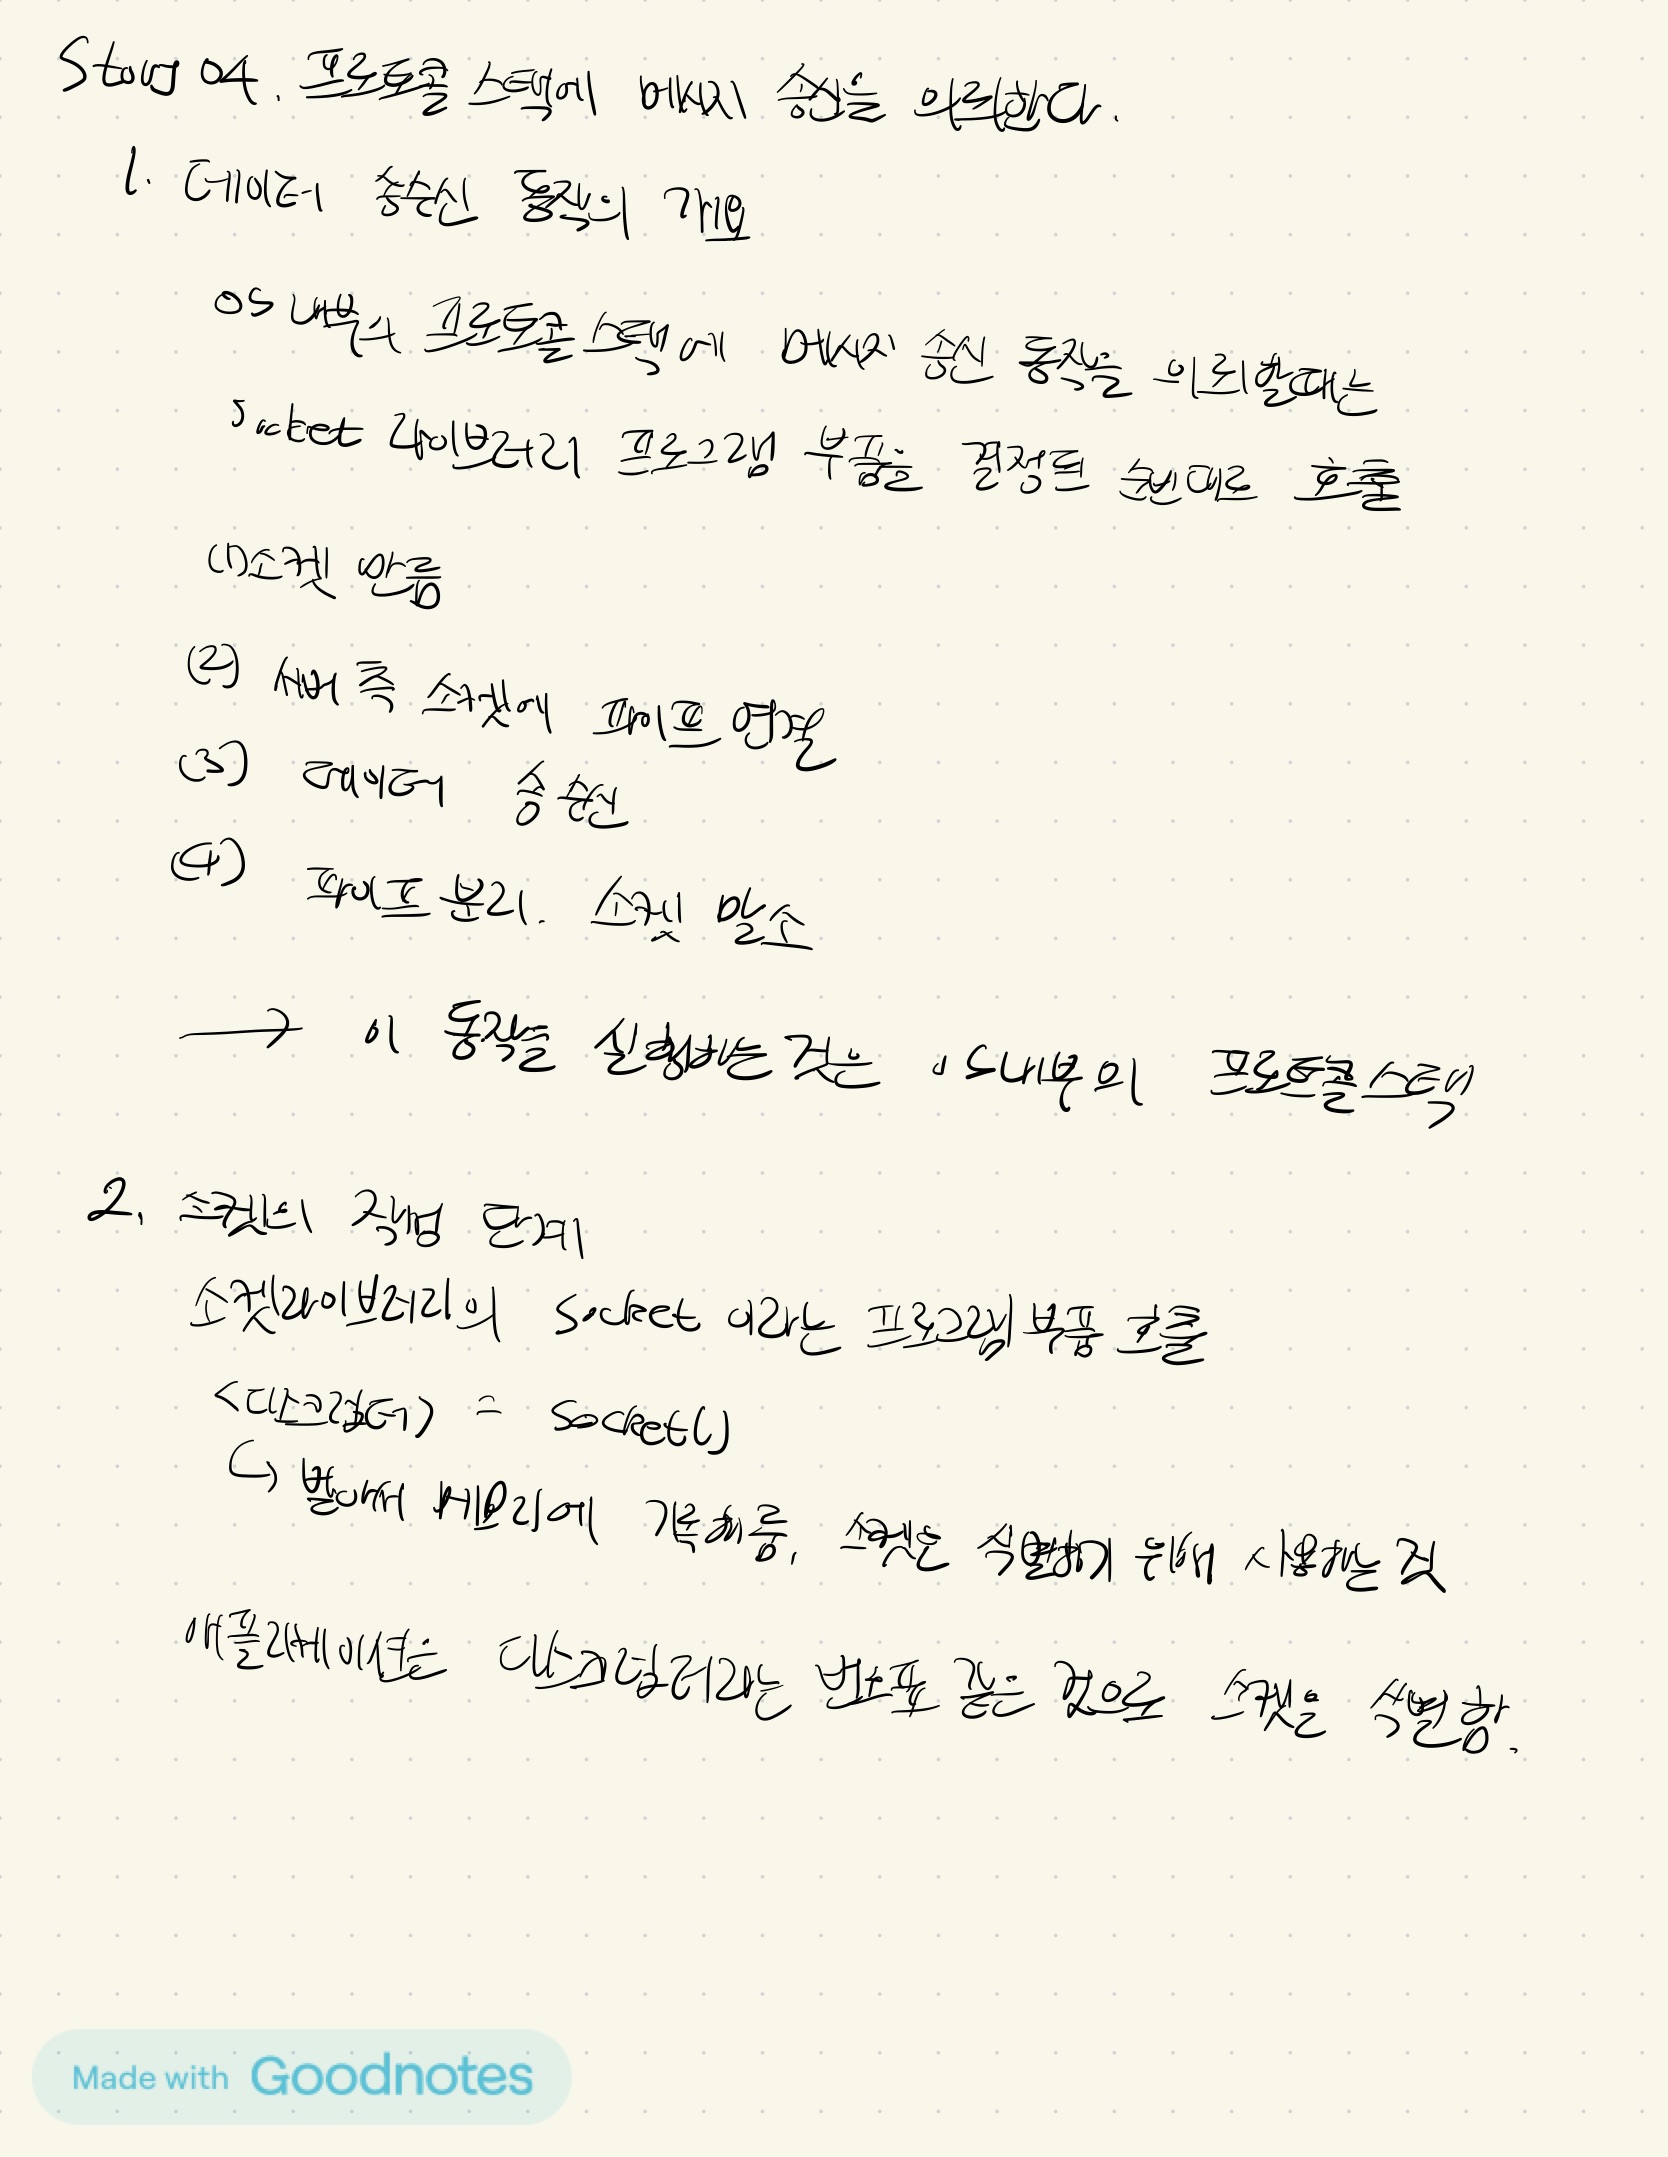 Story 04. 프로토콜 스택에 메시지 송신을 의뢰한다.
1. 데이터 송수신 동작의 개요
OS 내부의 프로토콜 스택에 메시지 송신 동작을 의뢰할때는
Socket 라이브러리 프로그램 부품을 결정된 순번대로 호출
(1) 소켓 만듬
(2) 서버 측 소켓에 파이프 연결
(3) 데이터 송수신
(4) 파이프 분리. 소켓 말소
→ 이 동작을 실행하는 것은 OS내부의 프로토콜 스택
2. 소켓의 작성 단계
소켓라이브러리의 Socket 이라는 프로그램 부품 호출
<디스크립터> = Socket()
↳ 받아서 메모리에 기록해둠, 소켓을 식별하기 위해 사용하는 것
애플리케이션은 디스크립터라는 번호표 같은 것으로 소켓을 식별함.
Made with Goodnotes